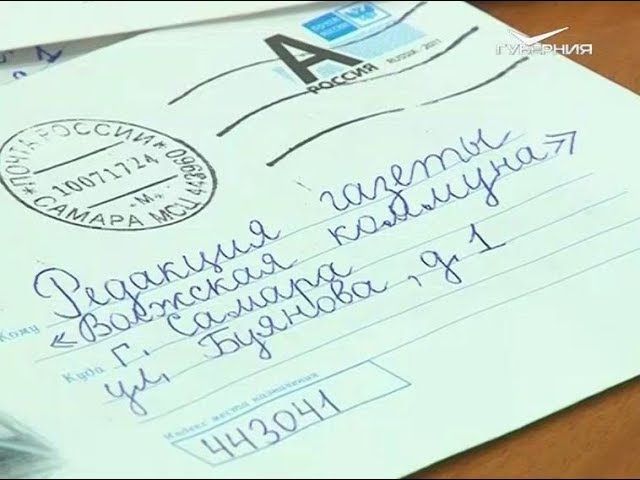 ГУБЕРНИЯ
ПОЧТА РОССИИ
А
РОССИЯ RUSSIA · 2011
ПОЧТА РОССИИ
10071724
-М-
САМАРА МСЦ
Редакция газеты
Кому «Волжская коммуна»
г. Самара
Куда ул. Буянова, д. 1
Индекс места назначения
443041